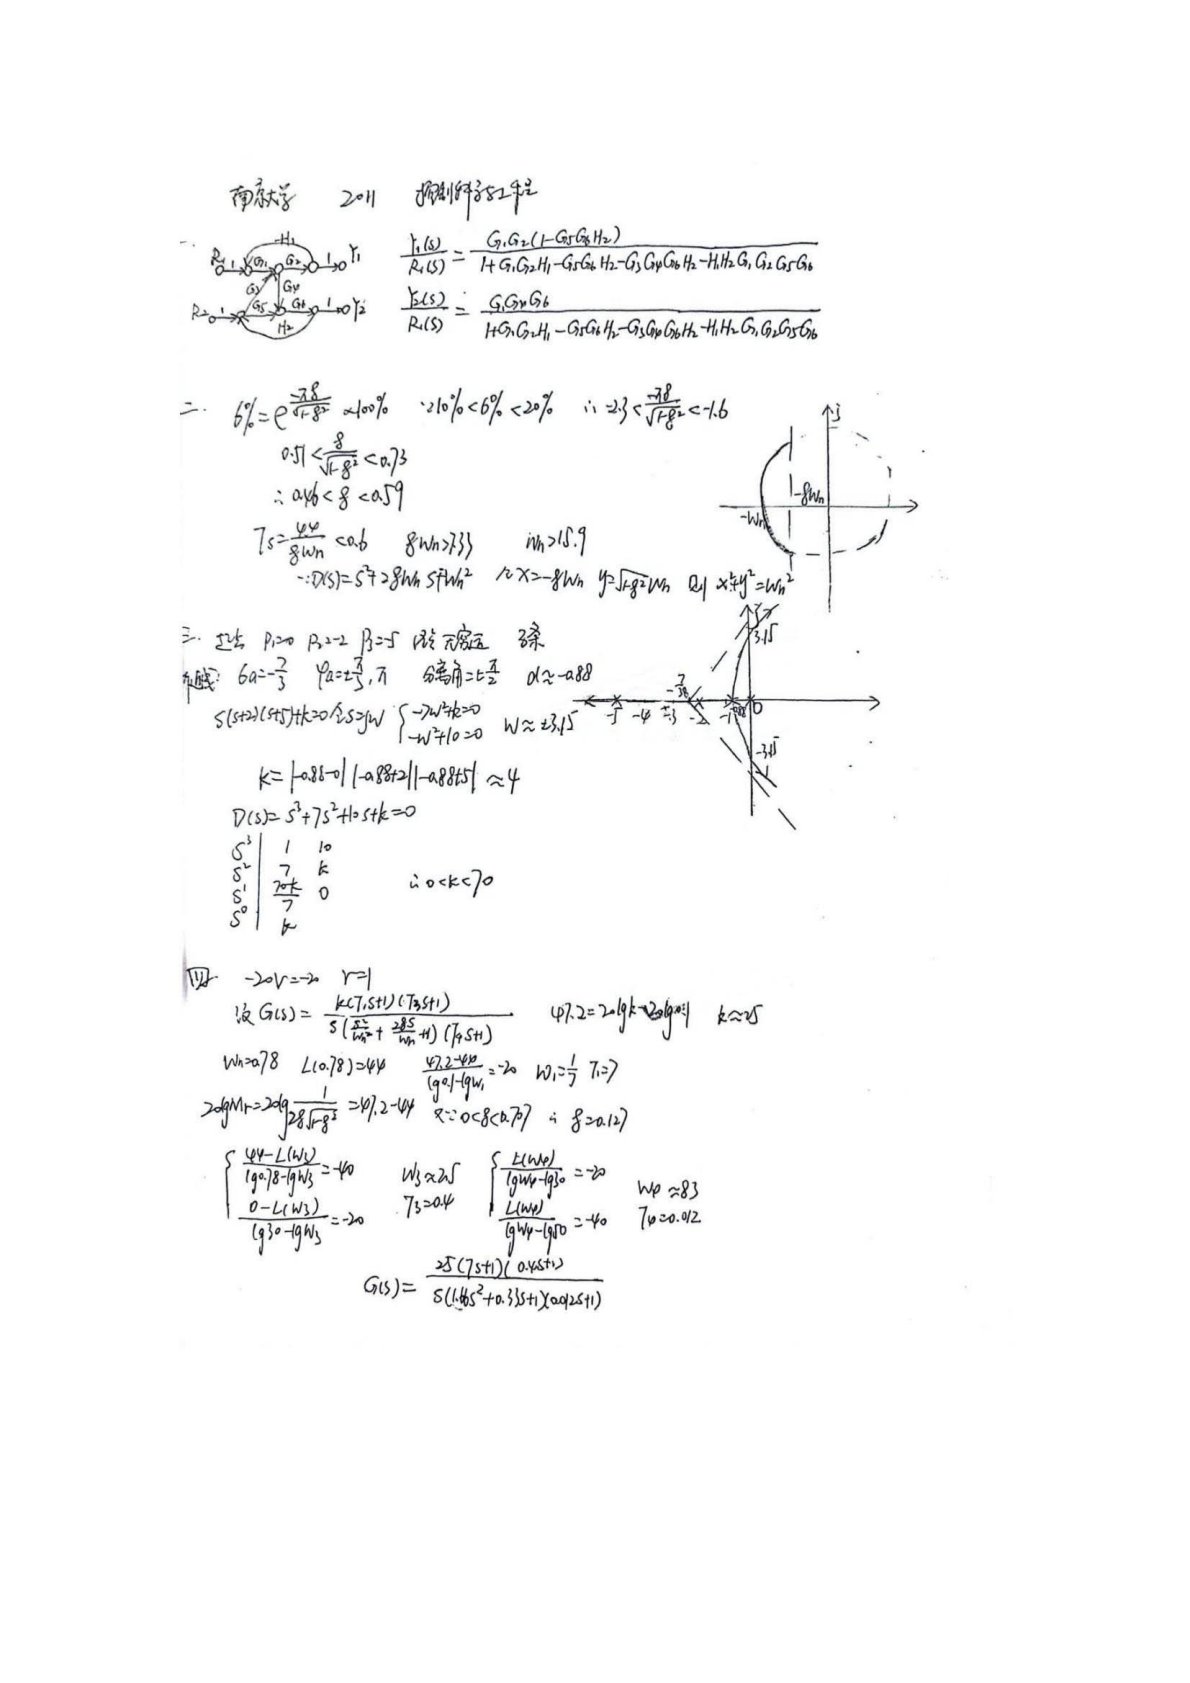 南京大学 2011 控制科学与工程
一.
R₁ 1 G₁ G₂ 1 Y₁ -H₁
G₃ G₄
R₂ 1 G₅ G₆ 1 Y₂ H₂
Y₁(s)/R₁(s) = G₁G₂(1-G₅G₆H₂) / 1+G₁G₂H₁-G₅G₆H₂-G₃G₄G₆H₂-H₁H₂G₁G₂G₅G₆
Y₂(s)/R₁(s) = G₁G₄G₆ / 1+G₁G₂H₁-G₅G₆H₂-G₃G₄G₆H₂-H₁H₂G₁G₂G₅G₆
二. σ% = e^(-πξ/√1-ξ²) ×100% ∵10%<σ%<20% ∴ -2.3 < -πξ/√1-ξ² < -1.6
0.51 < ξ/√1-ξ² < 0.73
∴ 0.46 < ξ < 0.59
Ts = 4.4/ξWn < 0.6 ξWn>7.33 Wn>15.9
∵D(s)=s²+2ξWns+Wn² 令x=-ξWn y=√1-ξ²Wn 则 x²+y²=Wn²
j -ξWn -Wn
三. P₁=0 P₂=-2 P₃=-5 3条
渐近线: σa=-7/3 φa=±π/3, π 分离角=±π/2 d≈-0.88
s(s+2)(s+5)+k=0 令s=jW { -7W²+k=0 -W²+10=0 W≈±3.15
k=|-0.88-0| |-0.88+2| |-0.88+5| ≈4
D(s)= s³+7s²+10s+k=0
s³ 1 10
s² 7 k
s¹ 70-k/7 0 ∴ 0<k<70
s⁰ k
3.15 -5 -4 -3 -2 -1 -0.88 0 -3.15
四. -20v=-20 v=1
设 G(s)= k(T₁s+1)(T₃s+1) / s(s²/Wn²+2ξs/Wn+1)(T₄s+1) 47.2=20lgk-20lg0.1 k≈25
Wn=0.78 L(0.78)=44 47.2-44/lg0.1-lgW₁=-20 W₁=1/7 T₁=7
20lgMr=20lg 1/2ξ√1-ξ² =47.2-44 又∵0<ξ<0.707 ∴ ξ=0.127
{ 44-L(W₃)/lg0.78-lgW₃=-40 W₃≈2.5 { L(W₄)/lgW₄-lg30=-20 W₄≈83
0-L(W₃)/lg30-lgW₃=-20 T₃=0.4 L(W₄)/lgW₄-lg50=-40 T₄=0.012
G(s)= 25(7s+1)(0.4s+1) / s(1.66s²+0.33s+1)(0.012s+1)